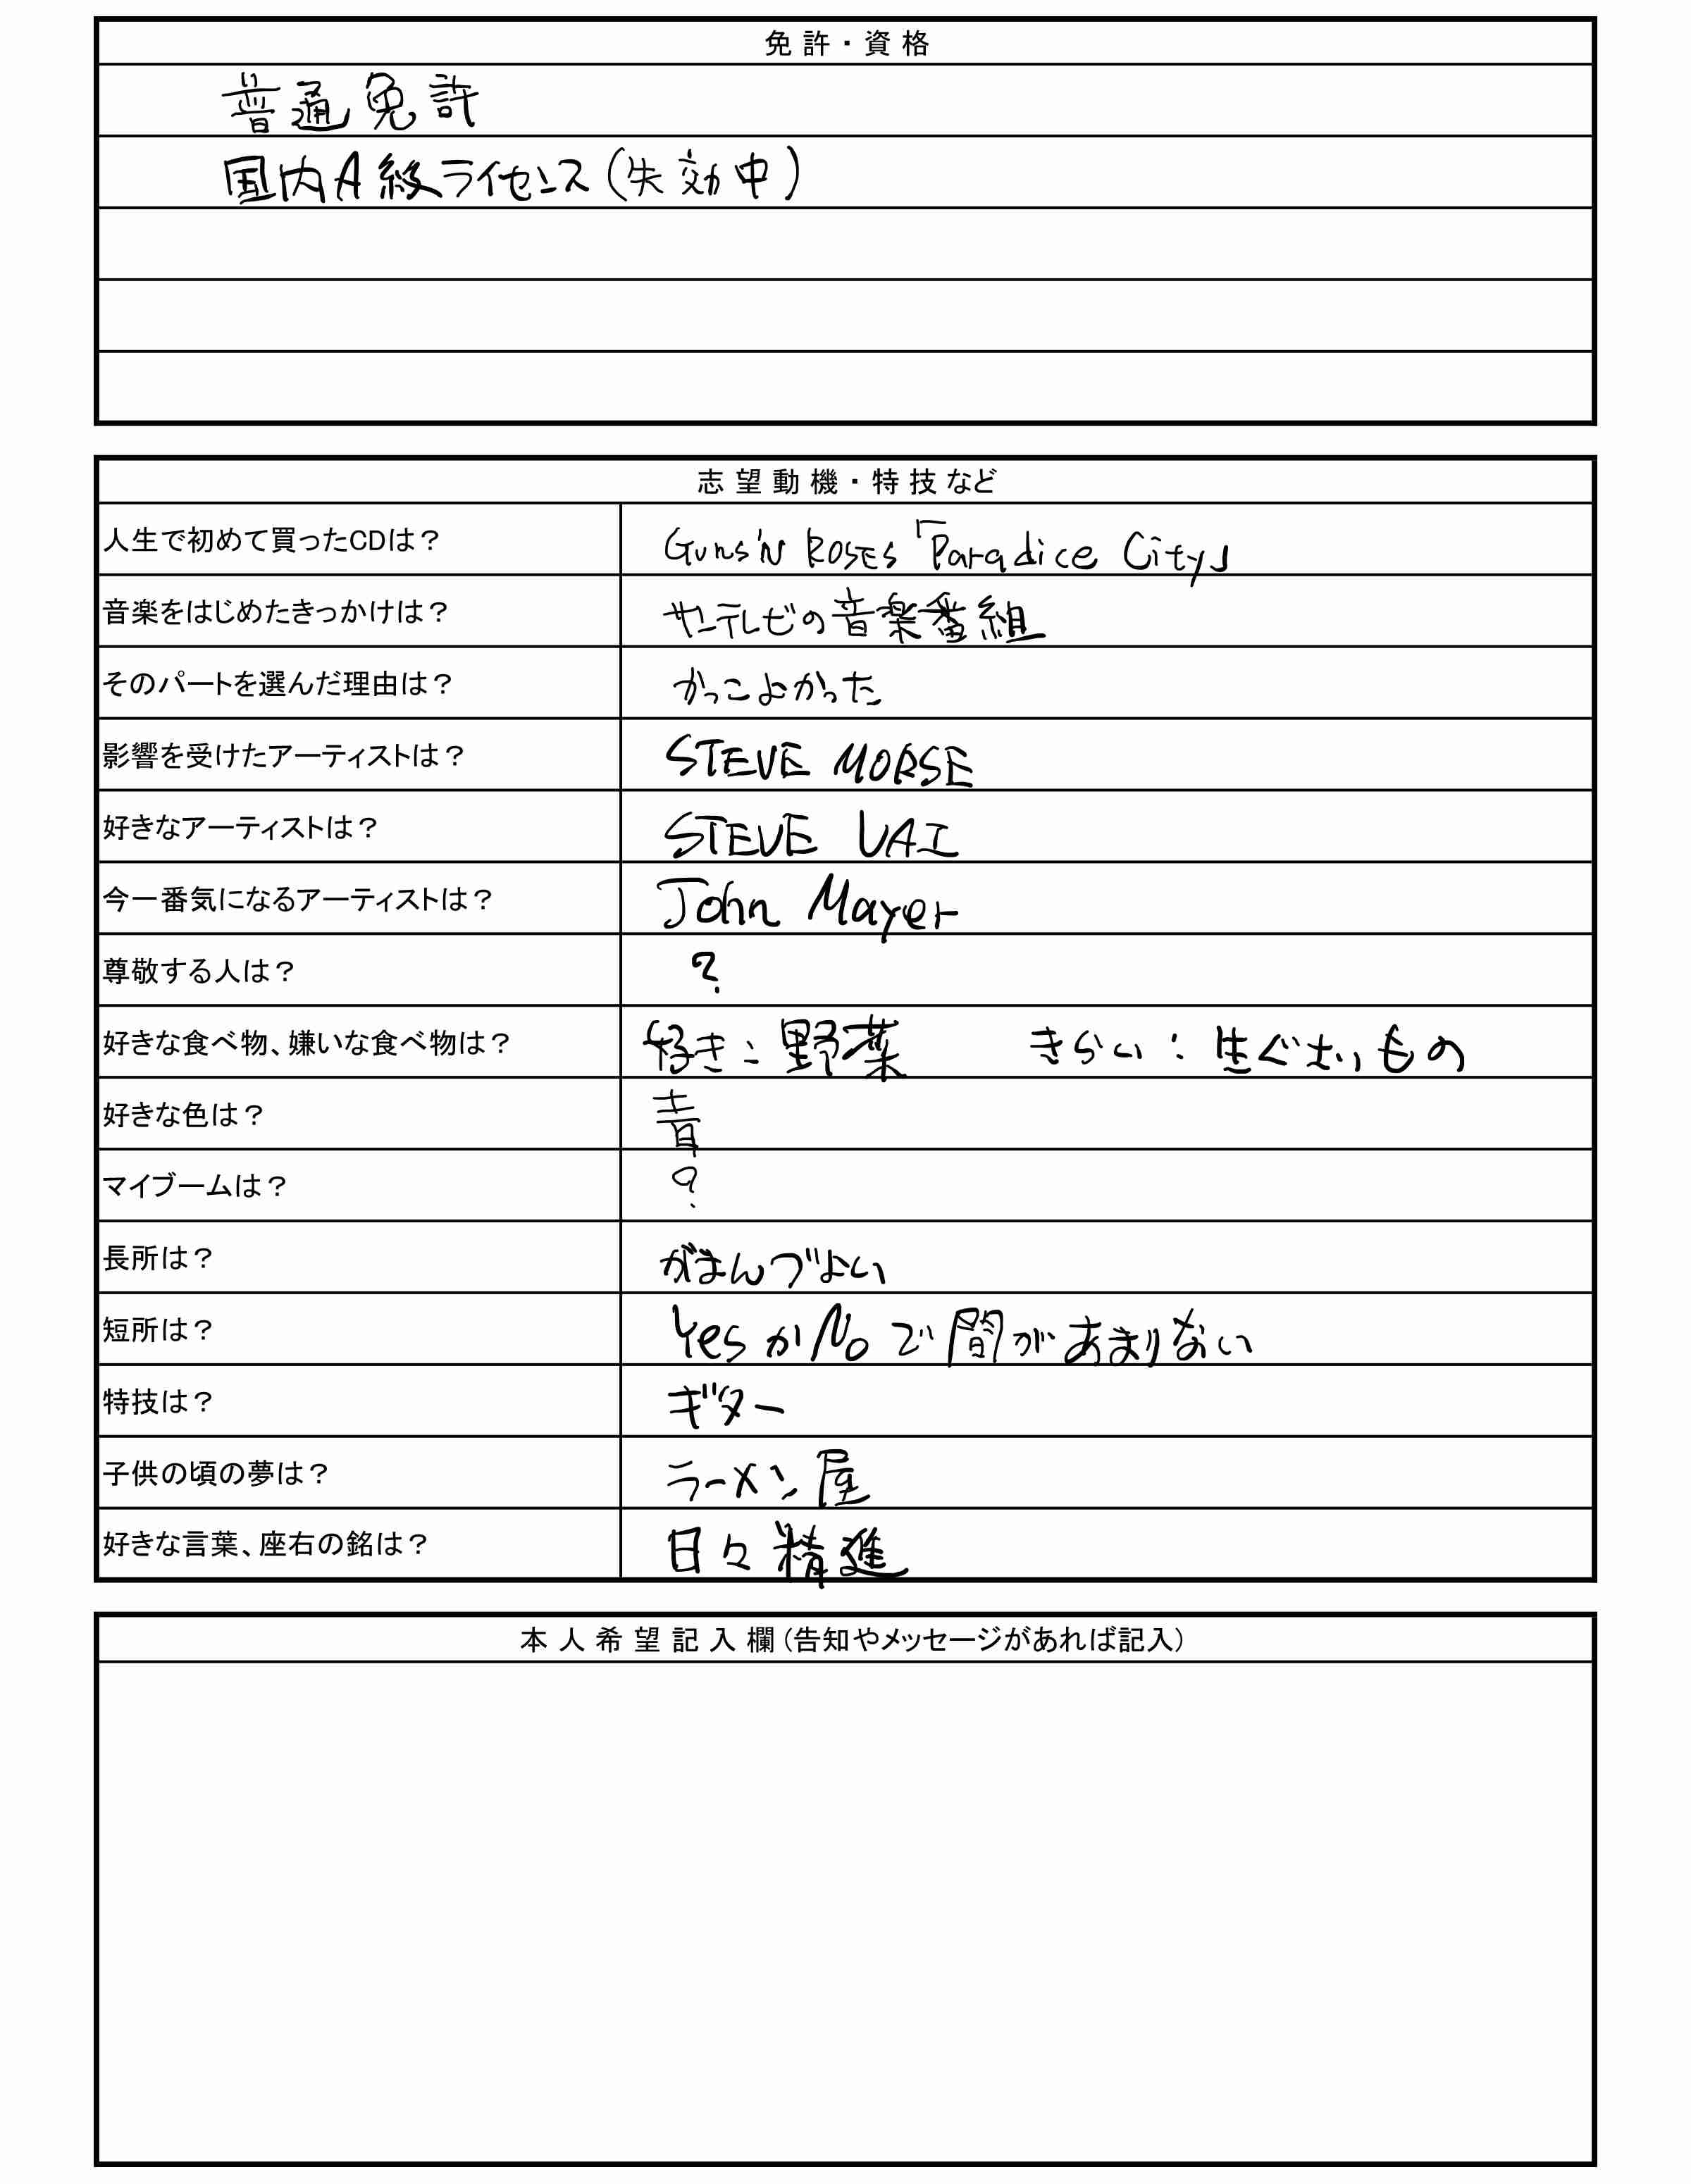 免許・資格
普通免許
国内A級ライセンス(失効中)
志望動機・特技など
人生で初めて買ったCDは？ Guns'n Roses「Paradice City」
音楽をはじめたきっかけは？ やっぱテレビの音楽番組
そのパートを選んだ理由は？ かっこよかった
影響を受けたアーティストは？ STEVE MORSE
好きなアーティストは？ STEVE VAI
今一番気になるアーティストは？ John Mayer
尊敬する人は？ ?
好きな食べ物、嫌いな食べ物は？ 好き：野菜 きらい：生ぐさいもの
好きな色は？ 青
マイブームは？ ?
長所は？ がまんづよい
短所は？ Yes か No で間があまりない
特技は？ ギター
子供の頃の夢は？ ラーメン屋
好きな言葉、座右の銘は？ 日々精進
本人希望記入欄(告知やメッセージがあれば記入)